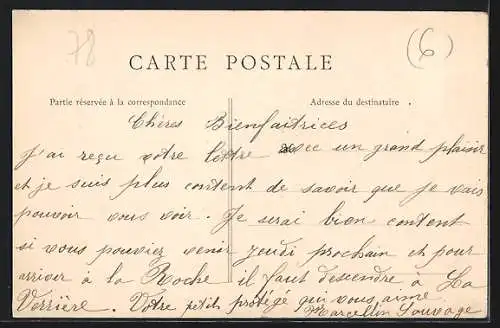 78
(6)
CARTE POSTALE
Partie réservée à la correspondance
Adresse du destinataire
Chères Bienfaitrices
J'ai reçu votre lettre avec un grand plaisir
et je suis plus content de savoir que je vais
pouvoir vous voir. Je serai bien content
si vous pouviez venir jeudi prochain et pour
arriver à la Roche il faut descendre à La
Verrière. Votre petit protégé qui vous aime
Marcellin Sauvage